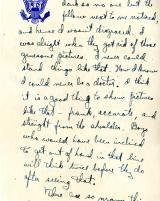 dark so no one but the
fellows next to me noticed
and hence I wasn't disgraced. I
was alright when they got rid of those
gruesome pictures. I never could
stand things like that. Now I know
I could never be a doctor. I think
it is a good thing to show pictures
like that – frank, accurate, and
straight from the shoulder. Boys
who would have been inclined
to get out of hand in that line
will think twice before they do
after seeing that.
There are so many th